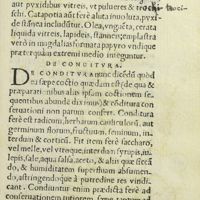 aut pyxidibus vitreis, ut pulueres & trochi-
schi. Catapotia aũt ferè aluta inuoluta, pyxi-
de stannea includũtur. Olea, unguẽta, cerata
liquida vitreis, lapideis, stanneis: emplastra
verò in magdalias formata papyro vndique
præterquàm extremi medio integuntur.
DE CONDITVRA.
DE CONDITVRA nunc dicẽdũ
sæpe coctio quædam est, sæpe
præparationibus alias ipsam coctionem se-
quentibus abunde diximus, & cõditura con-
seruationi non patum confert. Conditura
ferè est radicum, herbarum, caulium,
germinum, florum, fructuum, seminum, in-
terdum & corticũ. Fit item ferè saccharo,
vel melle, vel vtroque, interdum syrupis,
lepis, sale, aqua salsa, aceto, & aliis quæ siccã-
di, & humiditatem superfluam absumen-
di, astringendoque à putredine res vindi-
cant. Condiuntur enim prædicta ferè ad
conseruationem